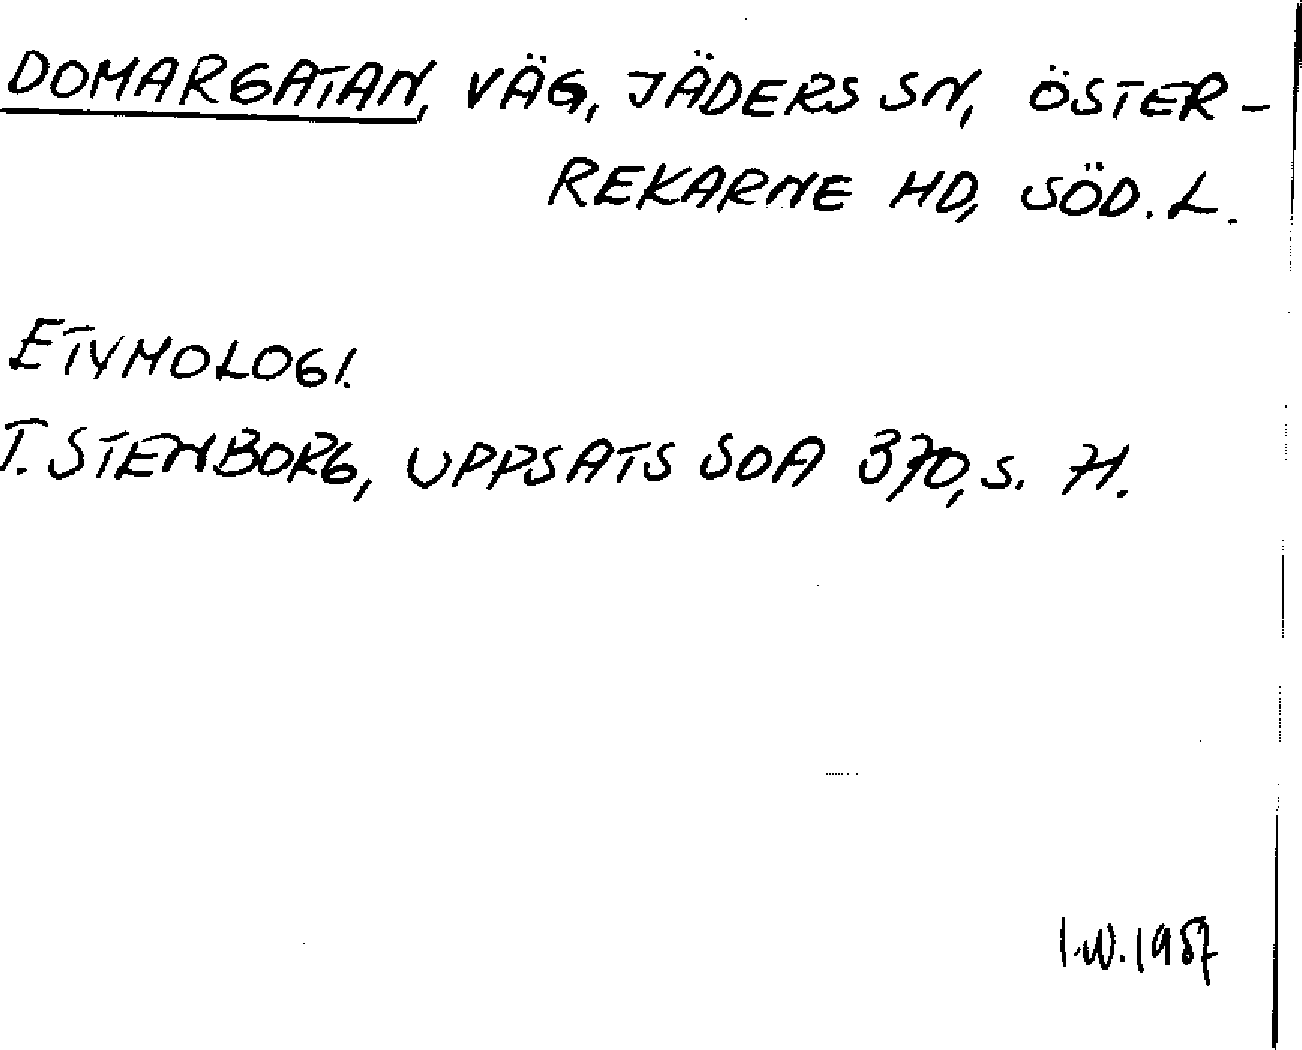 DOMARGATAN, VÄG, JÄDERS SN, ÖSTER-
REKARNE HD, SÖD. L.
ETYMOLOGI.
T. STENBORG, UPPSATS SOA 370, S. 71.
I.W. 1987